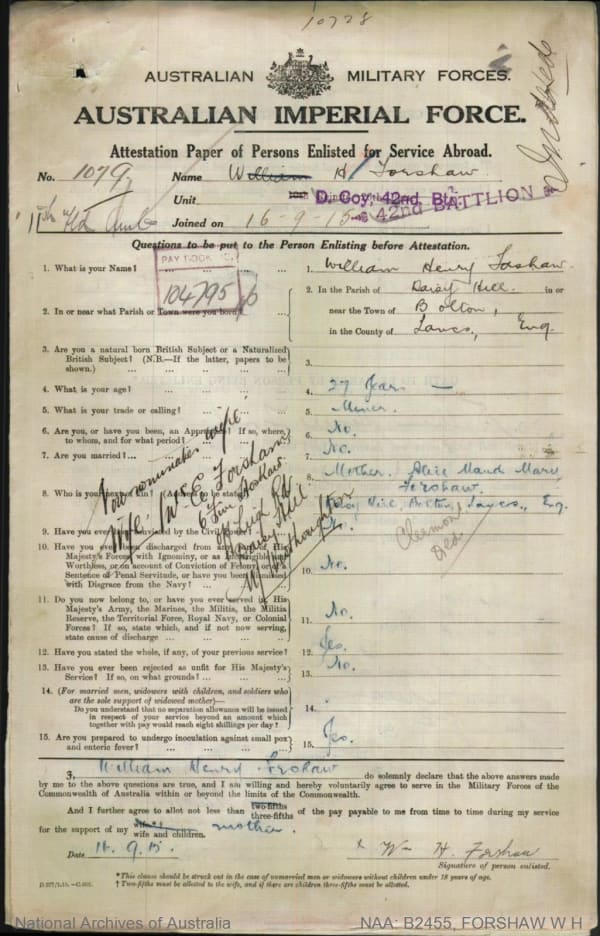 10728
AUSTRALIAN MILITARY FORCES.
AUSTRALIAN IMPERIAL FORCE.
Attestation Paper of Persons Enlisted for Service Abroad.
No. 1079 Name William H Forshaw
Unit D. Coy, 42nd, Btn. 42nd BATTLION
Joined on 16-9-15
Questions to be put to the Person Enlisting before Attestation.
PAY BOOK
104795
1. What is your Name? ... 1. William Henry Forshaw.
2. In or near what Parish or Town were you born? 2. In the Parish of Daisy Hill. in or
near the Town of Bolton,
in the County of Lancs, Eng.
3. Are you a natural born British Subject or a Naturalized
British Subject? (N.B.—If the latter, papers to be
shown.) ... 3.
4. What is your age? ... 4. 27 Years —
5. What is your trade or calling? ... 5. Miner.
6. Are you, or have you been, an Apprentice? If so, where,
to whom, and for what period? ... 6. No.
7. Are you married? ... 7. No.
8. Who is your next of kin? (Address to be stated) 8. Mother. Alice Maud Mary
Forshaw.
Daisy Hill, Bolton, Lancs, Eng.
Now nominates wife
Wife. W E Forshaw
Daisy Hill
Westhoughton
9. Have you ever been convicted by the Civil Power? ... 9.
10. Have you ever been discharged from any part of His
Majesty's Forces, with Ignominy, or as Incorrigible and
Worthless, or on account of Conviction of Felony, or of a
Sentence of Penal Servitude, or have you been dismissed
with Disgrace from the Navy? ... 10. No.
11. Do you now belong to, or have you ever served in, His
Majesty's Army, the Marines, the Militia, the Militia
Reserve, the Territorial Force, Royal Navy, or Colonial
Forces? If so, state which, and if not now serving,
state cause of discharge ... 11. No.
12. Have you stated the whole, if any, of your previous service? 12. Yes.
13. Have you ever been rejected as unfit for His Majesty's
Service? If so, on what grounds? ... 13. No.
14. (For married men, widowers with children, and soldiers who
are the sole support of widowed mother)—
Do you understand that no separation allowance will be issued
in respect of your service beyond an amount which
together with pay would reach eight shillings per day? 14.
15. Are you prepared to undergo inoculation against small pox
and enteric fever? ... 15. Yes.
I, William Henry Forshaw do solemnly declare that the above answers made
by me to the above questions are true, and I am willing and hereby voluntarily agree to serve in the Military Forces of the
Commonwealth of Australia within or beyond the limits of the Commonwealth.
And I further agree to allot not less than two-fifths three-fifths of the pay payable to me from time to time during my service
for the support of my wife and children. mother.
Date 16.9.15. Wm H. Forshaw
Signature of person enlisted.
*This clause should be struck out in the case of unmarried men or widowers without children under 18 years of age.
† Two-fifths must be allotted to the wife, and if there are children three-fifths must be allotted.
National Archives of Australia NAA: B2455, FORSHAW W H